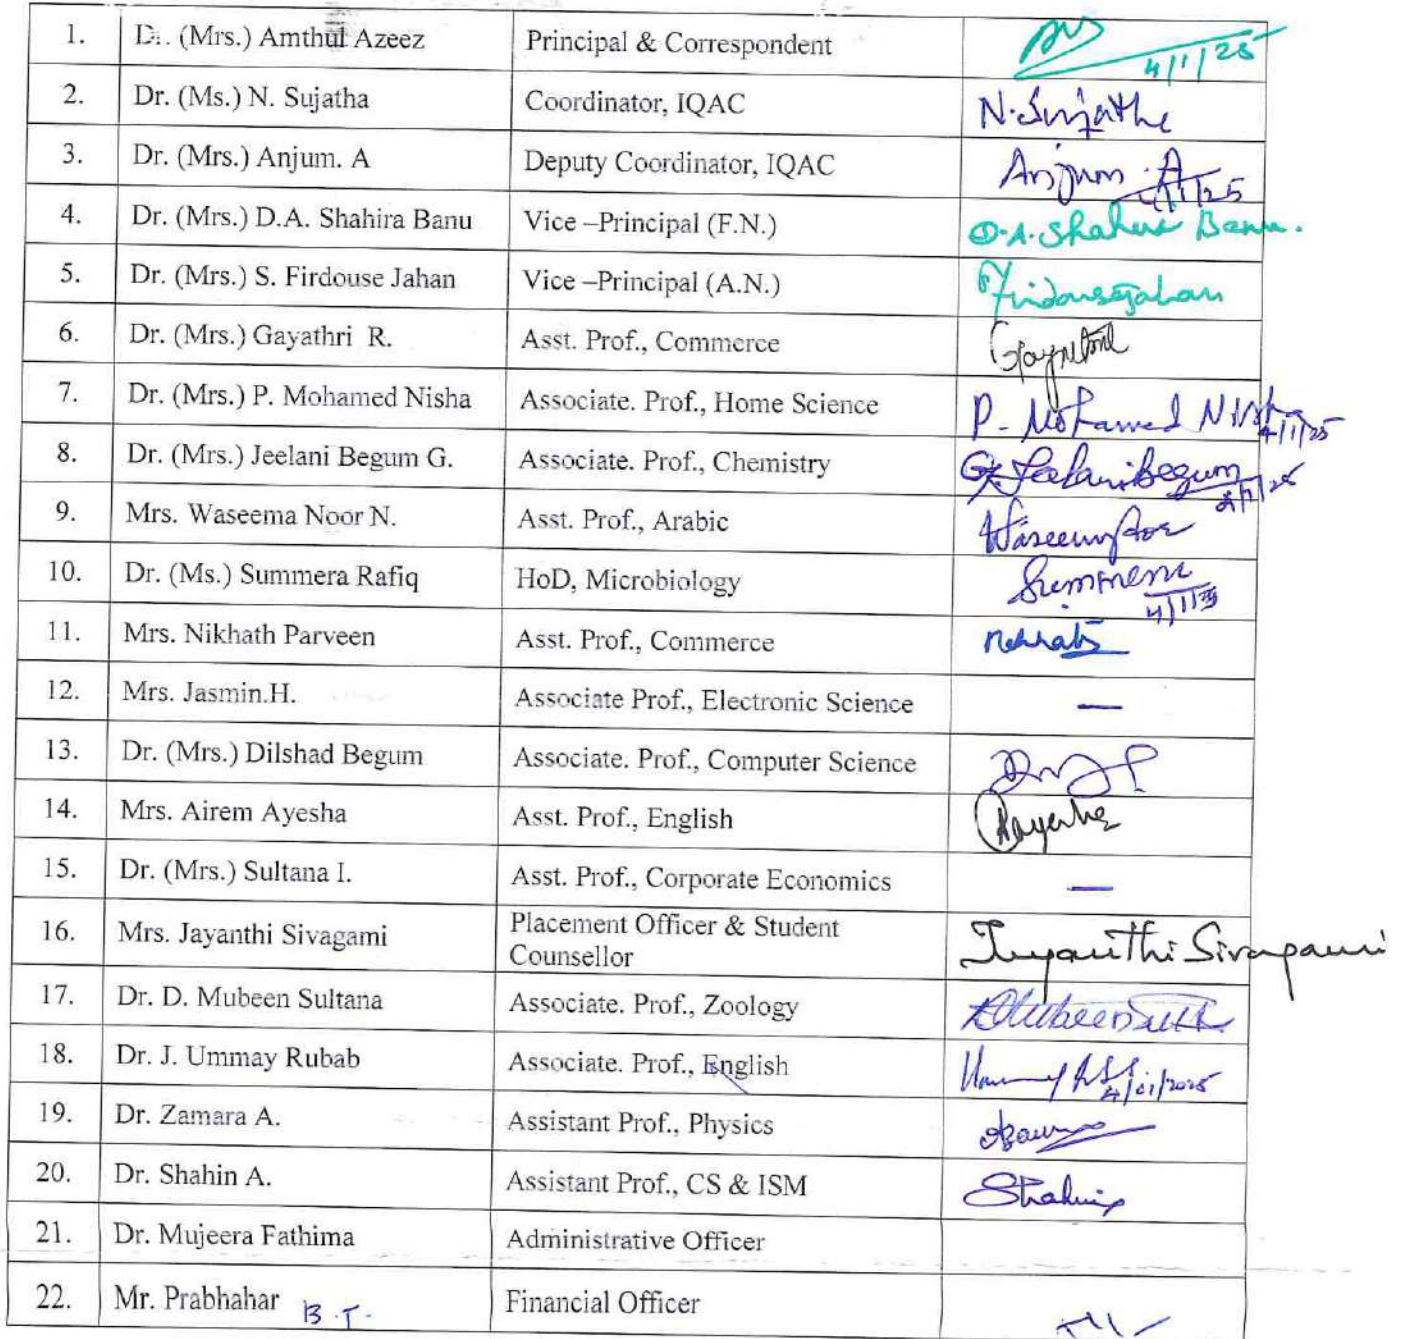 1. Dr. (Mrs.) Amthul Azeez Principal & Correspondent 4/1/25
2. Dr. (Ms.) N. Sujatha Coordinator, IQAC N. Sujatha
3. Dr. (Mrs.) Anjum. A Deputy Coordinator, IQAC Anjum. A 4/1/25
4. Dr. (Mrs.) D.A. Shahira Banu Vice –Principal (F.N.) D.A. Shahira Banu.
5. Dr. (Mrs.) S. Firdouse Jahan Vice –Principal (A.N.) Firdousejahan
6. Dr. (Mrs.) Gayathri R. Asst. Prof., Commerce
7. Dr. (Mrs.) P. Mohamed Nisha Associate. Prof., Home Science P. Mohamed Nisha 4/1/25
8. Dr. (Mrs.) Jeelani Begum G. Associate. Prof., Chemistry G. Jeelani Begum
9. Mrs. Waseema Noor N. Asst. Prof., Arabic
10. Dr. (Ms.) Summera Rafiq HoD, Microbiology
11. Mrs. Nikhath Parveen Asst. Prof., Commerce
12. Mrs. Jasmin.H. Associate Prof., Electronic Science —
13. Dr. (Mrs.) Dilshad Begum Associate. Prof., Computer Science
14. Mrs. Airem Ayesha Asst. Prof., English
15. Dr. (Mrs.) Sultana I. Asst. Prof., Corporate Economics —
16. Mrs. Jayanthi Sivagami Placement Officer & Student
Counsellor Jayanthi Sivagami
17. Dr. D. Mubeen Sultana Associate. Prof., Zoology
18. Dr. J. Ummay Rubab Associate. Prof., English 4/01/2025
19. Dr. Zamara A. Assistant Prof., Physics
20. Dr. Shahin A. Assistant Prof., CS & ISM
21. Dr. Mujeera Fathima Administrative Officer
22. Mr. Prabhahar B.T. Financial Officer